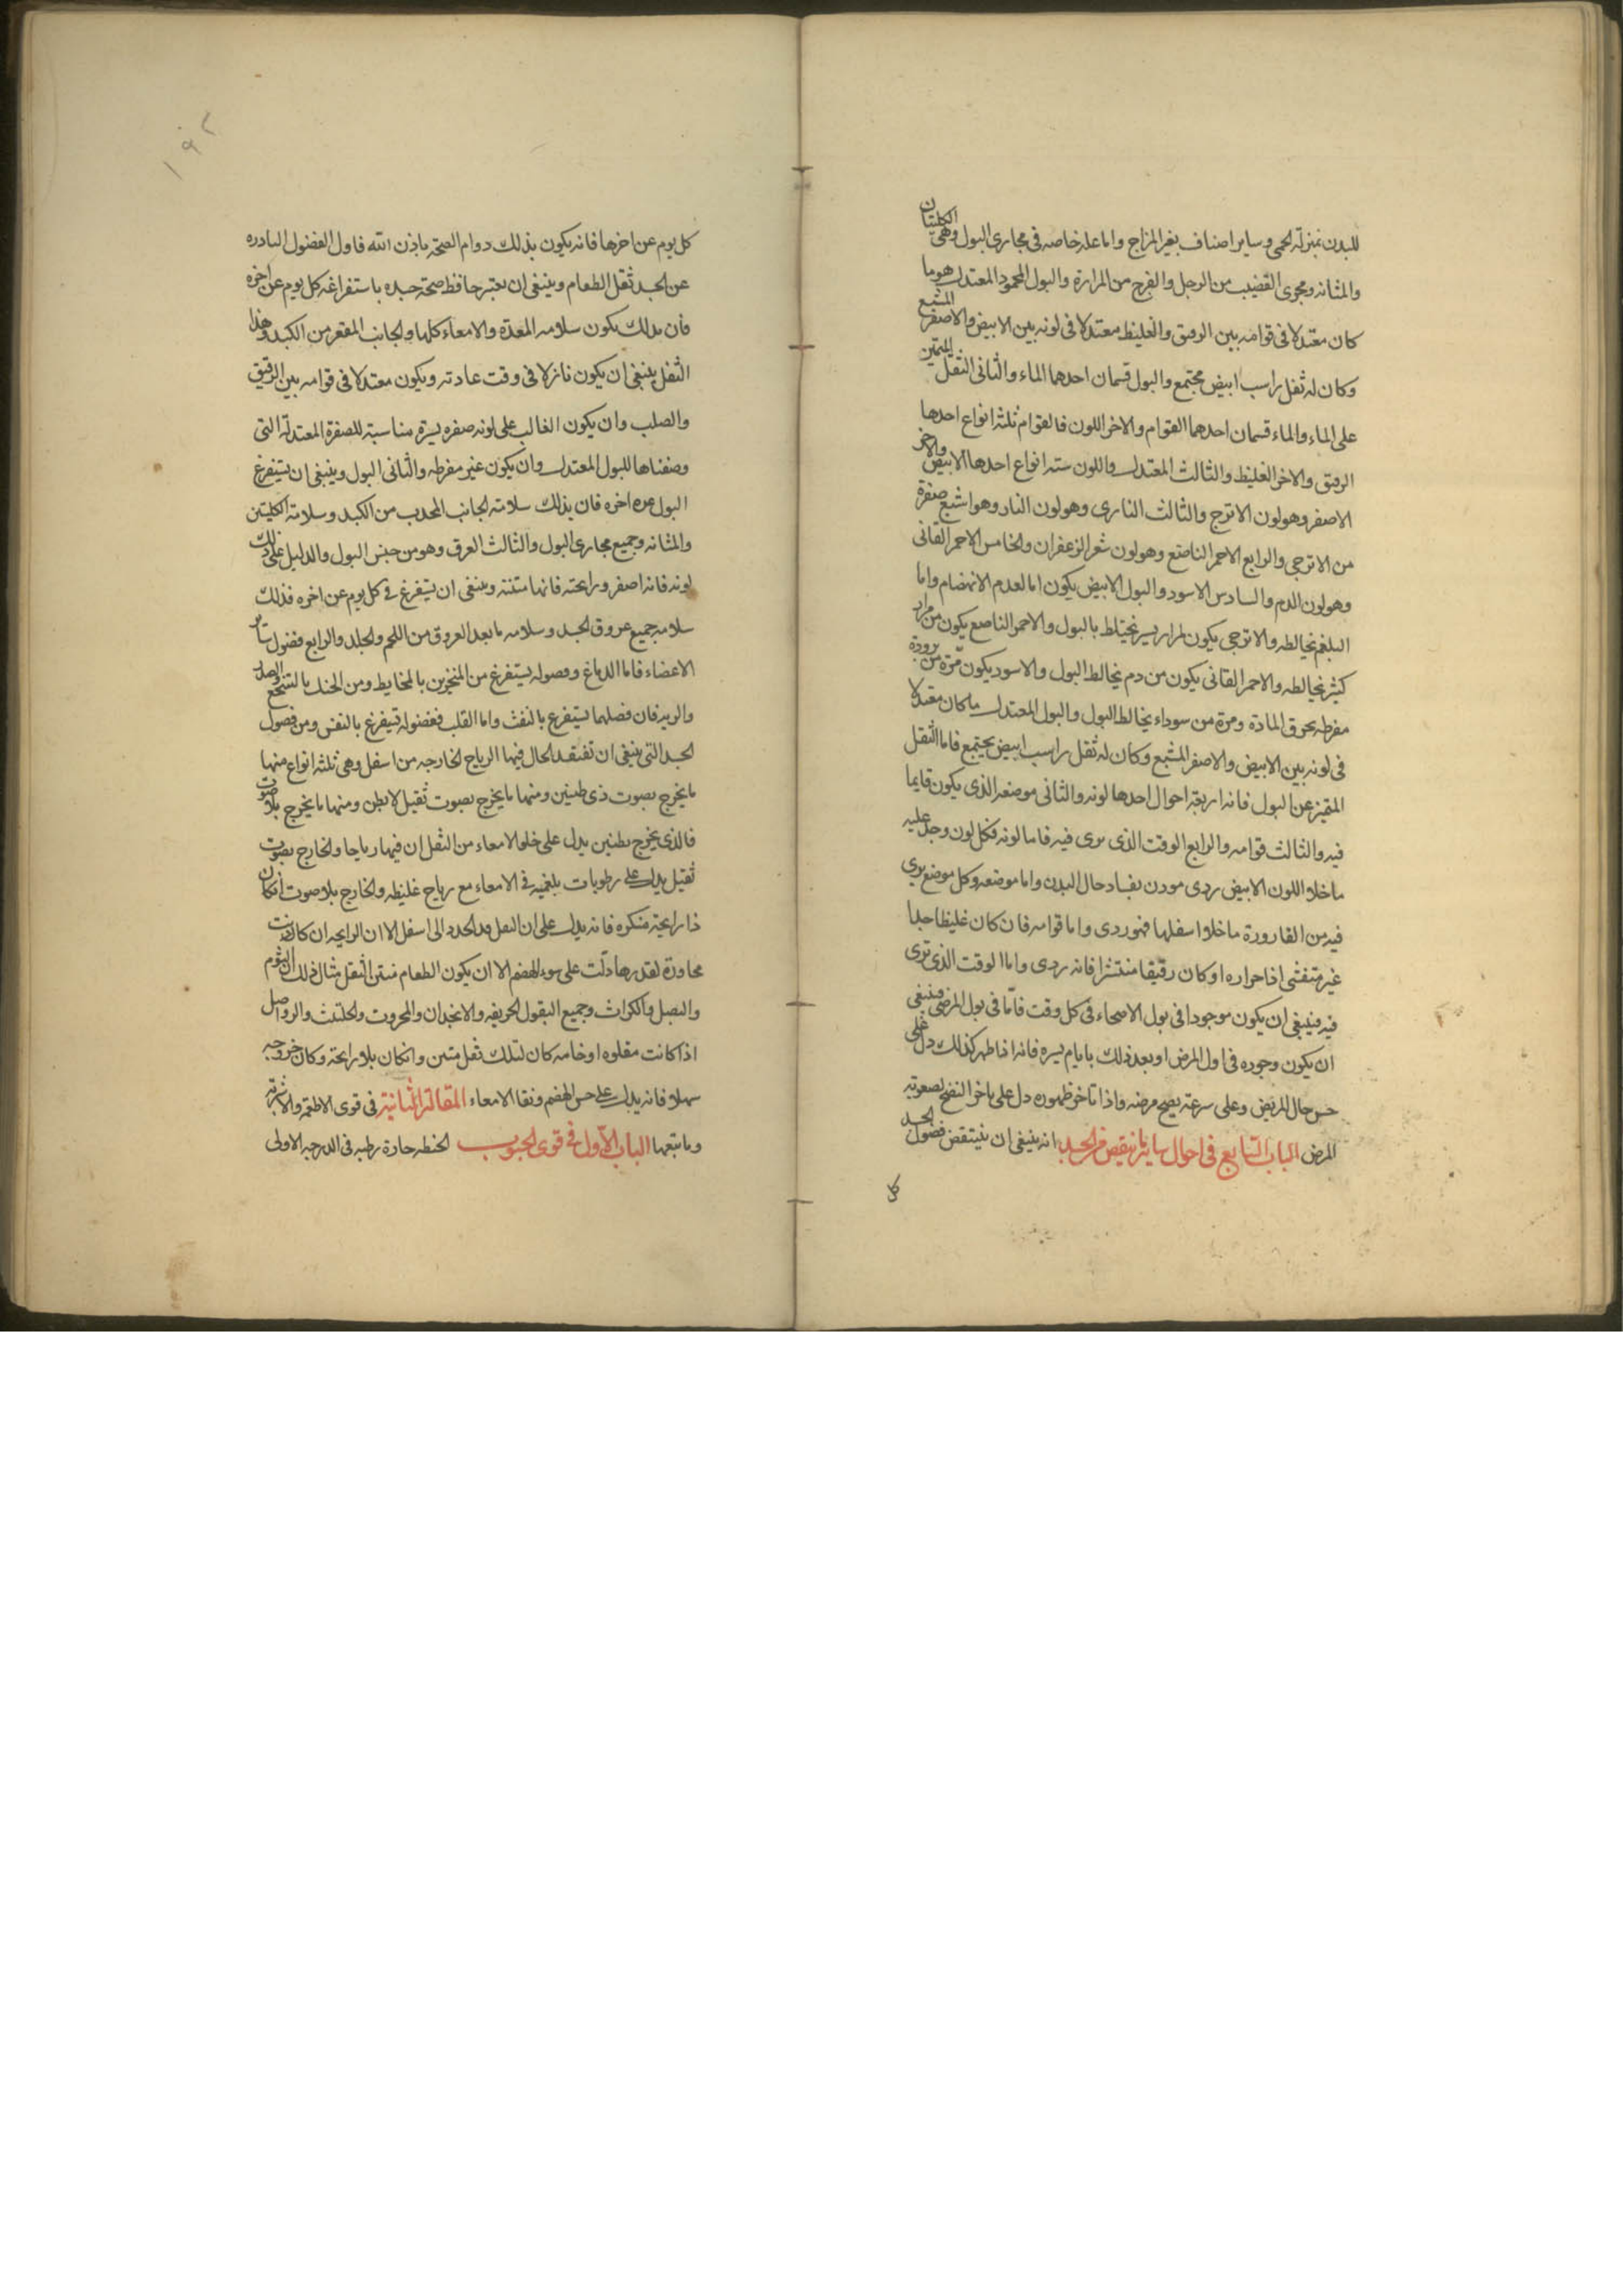 للبدن بمنزلة الحمى وساير اصناف تغير المزاج واما علة خاصه فى مجارى البول وهى الكليتان
والمثانه ومجرى القضيب من الرجل والفرج من المراة والبول المحمود المعتدل هو ما
كان معتدلا فى قوامه بين الرقيق والغليظ معتدلا فى لونه بين الابيض والاصفر المشبع
وكان له ثفل راسب ابيض مجتمع والبول قسمان احدهما الماء والثانى الثفل المتميز
على الماء والماء قسمان احدهما القوام والاخر اللون فالقوام ثلثة انواع احدها
الرقيق والاخر الغليظ والثالث المعتدل واللون سته انواع احدها الابيض والاخر
الاصفر وهو لون الاترج والثالث النارى وهو لون النار وهو اشبع صفرة
من الاترجى والرابع الاحمر الناصع وهو لون شعر الزعفران والخامس الاحمر القانى
وهو لون الدم والسادس الاسود والبول الابيض يكون اما لعدم الانهضام واما
البلغم يخالطه والاترجى يكون لمرار يسير يختلط بالبول والاحمر الناصع يكون من مرار
كثير يخالطه والاحمر القانى يكون من دم يخالط البول والاسود يكون مرة من برودة
مفرطه يحرق المادة ومرة من سوداء يخالط البول والبول المعتدل ما كان معتدلا
فى لونه بين الابيض والاصفر المشبع وكان له ثقل راسب ابيض يجتمع فاما الثقل
المتميز عن البول فانه اربعة احوال احدها لونه والثانى موضعه الذى يكون قايما
فيه والثالث قوامه والرابع الوقت الذى يرى فيه فاما لونه فكل لون وجد عليه
ما خلا اللون الابيض ردى موذن بفساد حال البدن واما موضعه وكل موضع يرى
فيه من القارورة ما خلا اسفلها فهو ردى واما قوامه فان كان غليظا جدا
غير متفشى اذا حراره او كان رقيقا منتشرا فانه ردى واما الوقت الذى ترى
فيه فينبغى ان يكون موجودا فى بول الاصحاء فى كل وقت فامّا فى بول المرضى فينبغى
ان يكون وجوده فى اول المرض او بعد ذلك بايام يسيره فانه اذا ظهر كذلك دل على
حسن حال المريض وعلى سرعة نضج مرضه واذا تاخر ظهوره دل على تاخر النضج لصعوبة
المرض الباب التاسع فى احوال ساير ما ينقص من الجسد انه ينبغى ان ينتقض فضول الجسد
كل
١٩٢
كل يوم عن اخرها فانه يكون بذلك دوام الصحة باذن الله فاول الفضول البادره
عن الجسد ثقل الطعام وينبغى ان يعتبر حافظ صحة جسده باستفراغه كل يوم عن اخره
فان بذلك يكون سلامه المعدة والامعاء كلها والجانب المقعر من الكبد وهذا
الثفل ينبغى ان يكون نازلا فى وقت عادته ويكون معتدلا فى قوامه بين الرقيق
والصلب وان يكون الغالب على لونه صفره يسيرة مناسبة للصفرة المعتدلة التى
وصفناها للبول المعتدل وان يكون غير مفرطه والثانى البول وينبغى ان يستفرغ
البول عن اخره فان بذلك سلامة الجانب المحدب من الكبد وسلامة الكليتين
والمثانه وجميع مجارى البول والثالث العرق وهو من جنس البول والدليل على ذلك
لونه فانه اصفر ورايحته فانها منتنة وينبغى ان يستفرغ فى كل يوم عن اخره فذلك
سلامه جميع عروق الجسد وسلامه ما بعد العروق من اللحم والجلد والرابع فضول ساير
الاعضاء فاما الدماغ وفضوله يستفرغ من المنخرين بالمخايط ومن الحنك بالتنخع والصدر
والريه فان فضلهما يستفرغ بالنفث واما القلب ففضوله تستفرغ بالنفس ومن فضول
الجسد التى ينبغى ان تفتقد الحال فيها الرياح الخارجه من اسفل وهى ثلثه انواع منها
ما يخرج بصوت ذى طنين ومنها ما يخرج بصوت ثقيل لا يطن ومنها ما يخرج بلا صوت
فالذى يخرج بطنين يدل على خلو الامعاء من الثفل ان فيها رياحا والخارج بصوت
ثقيل يدل على رطوبات بلغميه فى الامعاء مع رياح غليظه والخارج بلا صوت انكان
ذا رايحة منكره فانه يدل على ان الثفل قد انحدر الى اسفل الا ان الرايحه ان كانت
لقدرها دلت على سوء الهضم الا ان يكون الطعام منتن الثقل مثال ذلك الثوم
والبصل والكراث وجميع البقول الحريفه والانجدان والمحروت والحلتيت
اذا كانت مقلوه او خامه كان لتلك ثفل منتن وانكان بلا رايحة وكان خروجه
سهلا فانه يدل على حسن الهضم ونقا الامعاء المقالة الثانية فى قوى الاطعمة والاشربة
وما يتبعها الباب الاول فى قوى الحبوب الحنطه حارة رطبه فى الدرجه الاولى